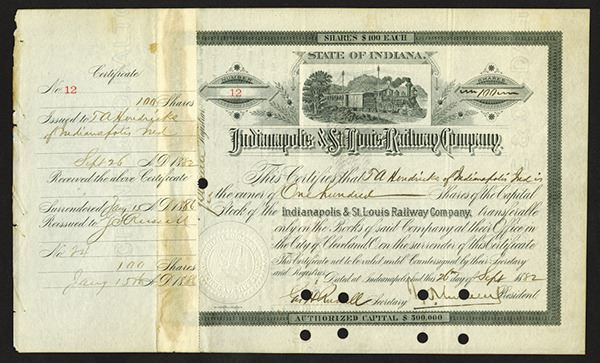 Certificate
No 12
100 Shares
Issued to T A Hendricks
of Indianapolis Ind
Sept 26 A.D. 1882
Received the above Certificate
Surrendered Jany 15 A.D. 188
Reissued to
No 24
100 Shares
Jany 15th A.D. 188
SHARES $100 EACH
STATE OF INDIANA.
NUMBER
12
SHARES
100
Indianapolis & St. Louis Railway Company.
This Certifies that T A Hendricks of Indianapolis Ind is
the owner of One hundred Shares of the Capital
Stock of the Indianapolis & St. Louis Railway Company, transferable
only on the Books of said Company at their Office in
the City of Cleveland O. on the surrender of this Certificate
This Certificate not to be valid until Countersigned by their Secretary
and Registrar.
Dated at Indianapolis this 26th day of Sept 1882
Geo H Russell Secretary President
AUTHORIZED CAPITAL $500,000